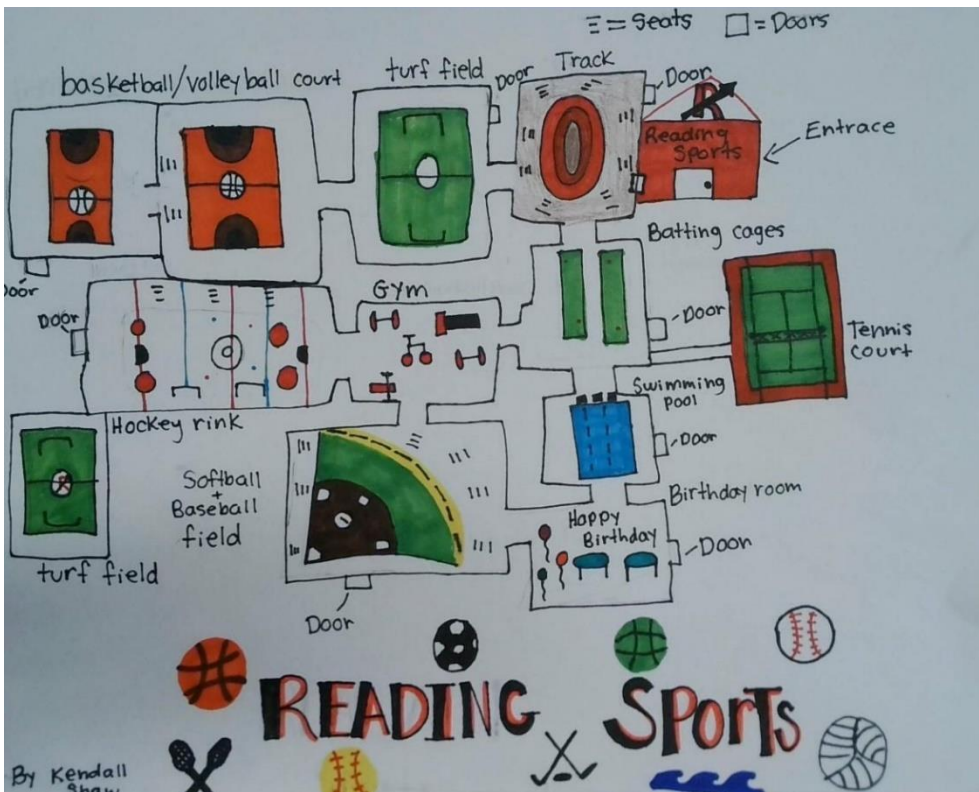 Ξ = Seats
□ = Doors
basketball/volleyball court
turf field
Door
Track
Door
Reading
Sports
Entrace
Batting cages
Door
Door
Gym
Door
Tennis
court
Swimming
pool
Hockey rink
Door
Softball
+
Baseball
field
Birthday room
Happy
Birthday
Door
turf field
Door
READING SPorTs
By Kendall